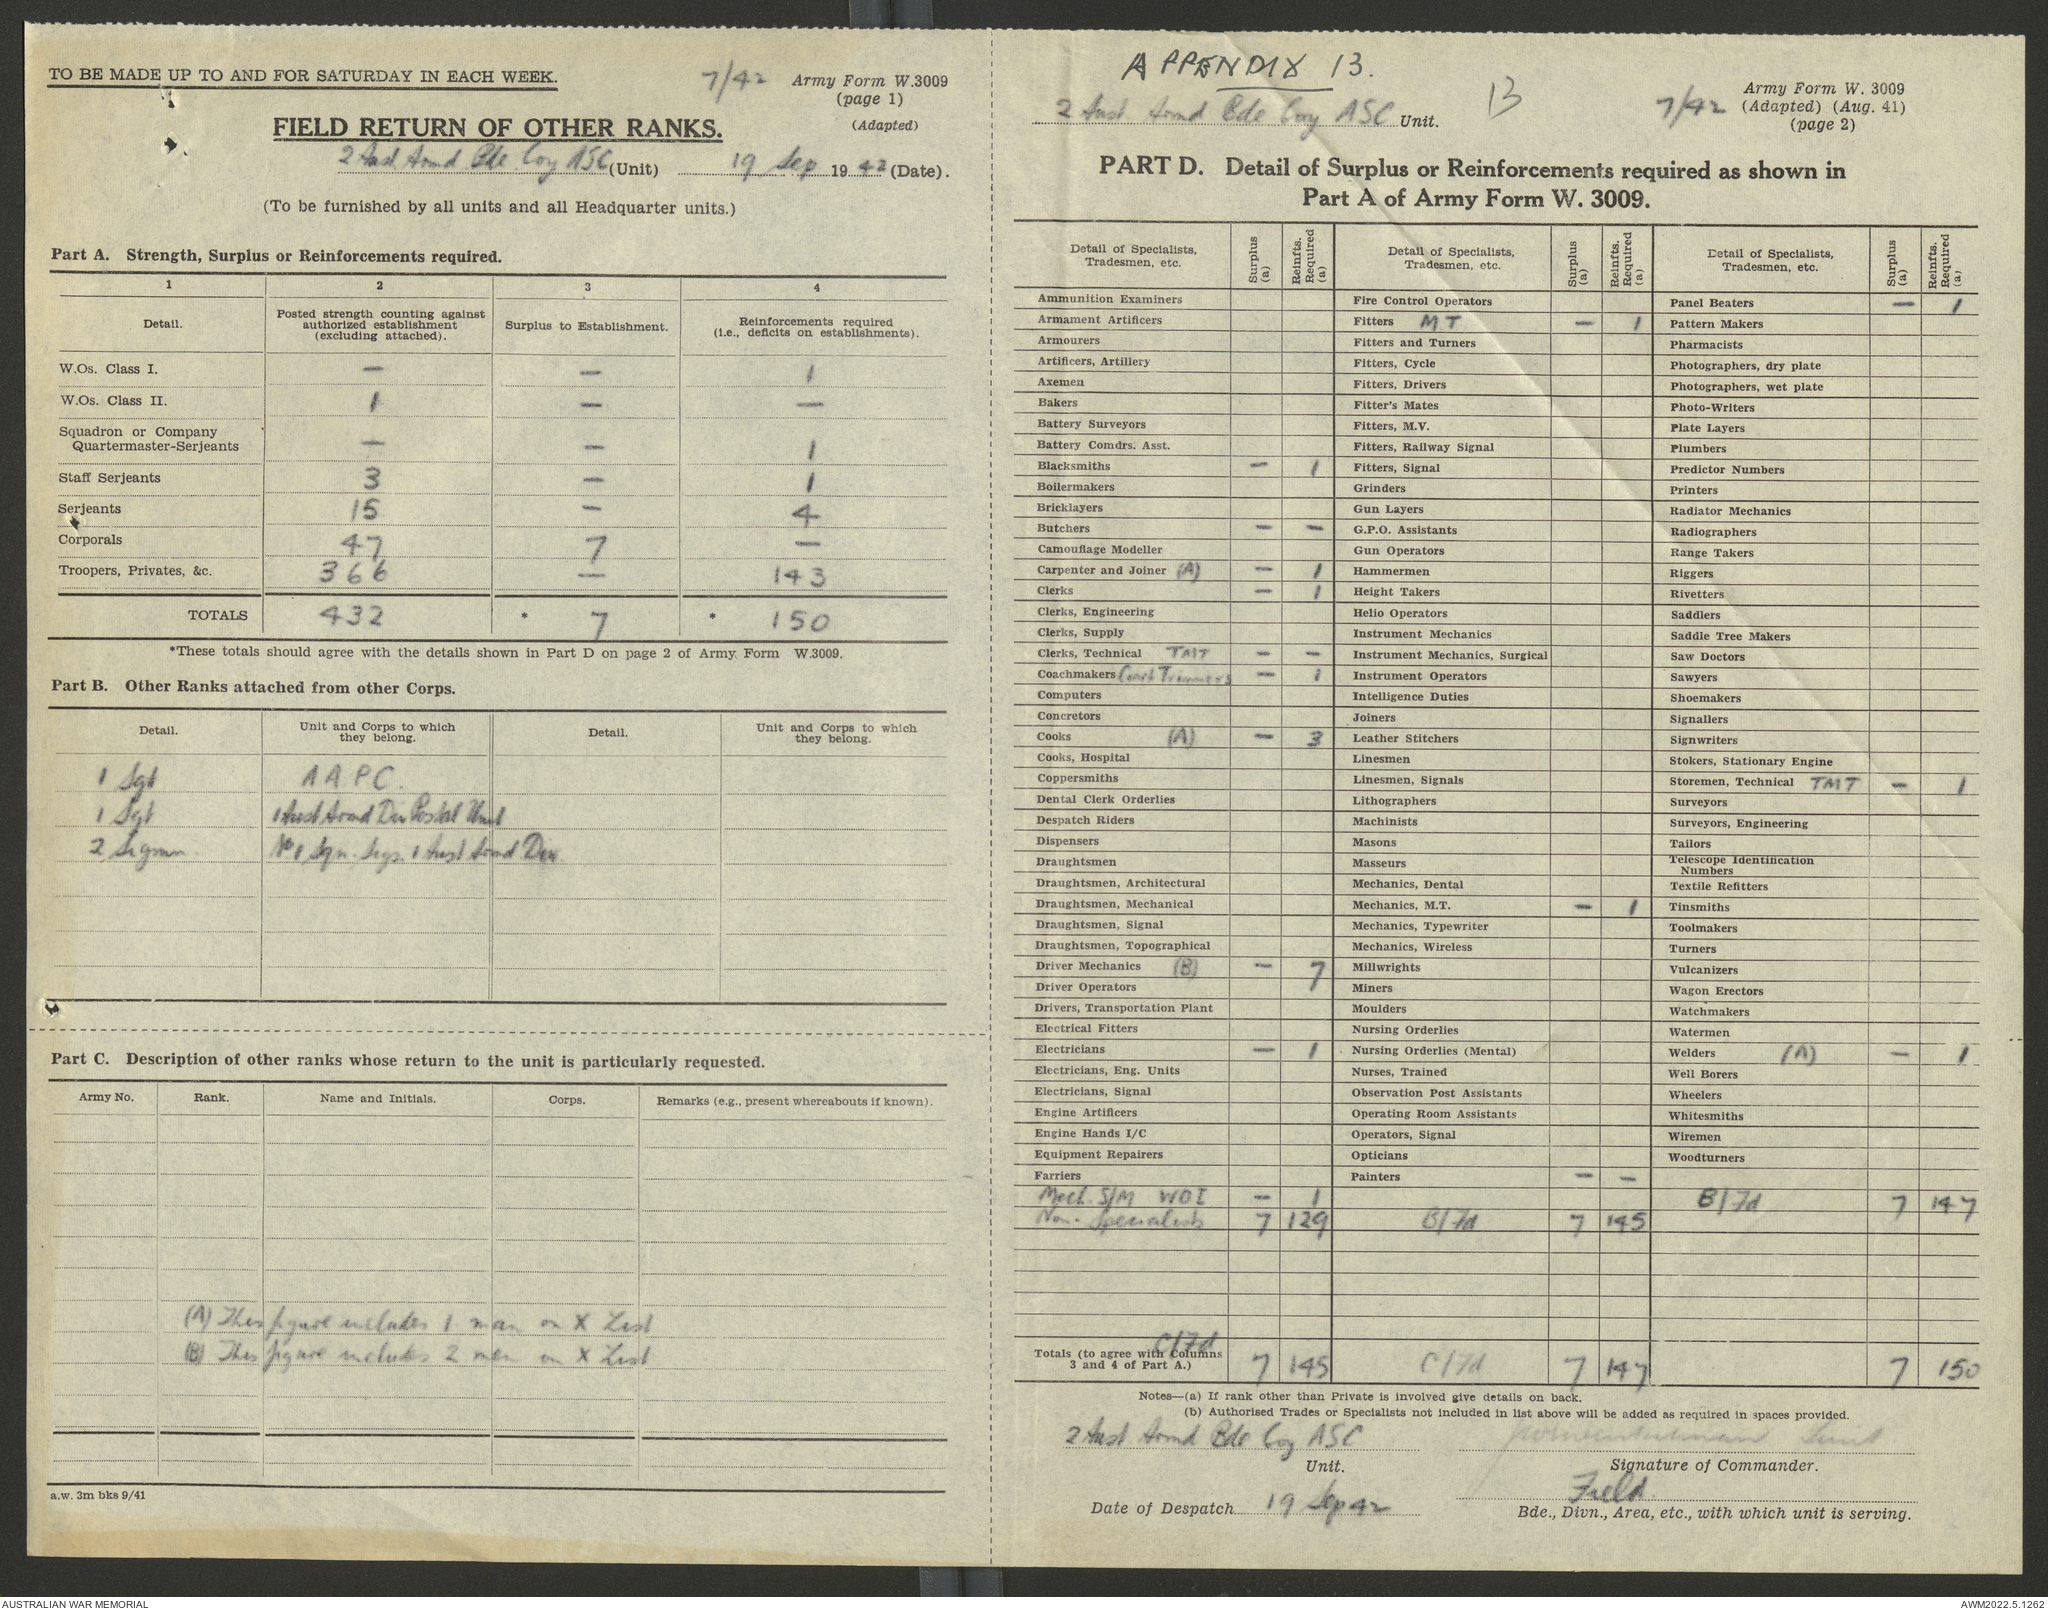 TO BE MADE UP TO AND FOR SATURDAY IN EACH WEEK.
7/42
Army Form W.3009
(page 1)
(Adapted)
FIELD RETURN OF OTHER RANKS.
2 Aust Armd Bde Coy ASC (Unit) 19 Sep 1942 (Date).
(To be furnished by all units and all Headquarter units.)
Part A. Strength, Surplus or Reinforcements required.
1 2 3 4
Detail. Posted strength counting against authorized establishment (excluding attached). Surplus to Establishment. Reinforcements required (i.e., deficits on establishments).
W.Os. Class I. — — 1
W.Os. Class II. 1 — —
Squadron or Company
Quartermaster-Serjeants — — 1
Staff Serjeants 3 — 1
Serjeants 15 — 4
Corporals 47 7 —
Troopers, Privates, &c. 366 — 143
TOTALS 432 * 7 * 150
*These totals should agree with the details shown in Part D on page 2 of Army Form W.3009.
Part B. Other Ranks attached from other Corps.
Detail. Unit and Corps to which they belong. Detail. Unit and Corps to which they belong.
1 Sgt AAPC
1 Sgt 1 Aust Armd Div Postal Unit
2 Sigmn. No 1 Sqn. Sigs. 1 Aust Armd Div
Part C. Description of other ranks whose return to the unit is particularly requested.
Army No. Rank. Name and Initials. Corps. Remarks (e.g., present whereabouts if known).
(A) This figure includes 1 man on X List
(B) This figure includes 2 men on X List
a.w. 3m bks 9/41
APPENDIX 13.
2 Aust Armd Bde Coy ASC Unit.
13
7/42
Army Form W. 3009
(Adapted) (Aug. 41)
(page 2)
PART D. Detail of Surplus or Reinforcements required as shown in
Part A of Army Form W. 3009.
Detail of Specialists, Tradesmen, etc. Surplus (a) Reinfts. Required (a)
Ammunition Examiners
Armament Artificers
Armourers
Artificers, Artillery
Axemen
Bakers
Battery Surveyors
Battery Comdrs. Asst.
Blacksmiths — 1
Boilermakers
Bricklayers
Butchers — —
Camouflage Modeller
Carpenter and Joiner (A) — 1
Clerks — 1
Clerks, Engineering
Clerks, Supply
Clerks, Technical TMT — —
Coachmakers Coach Trimmers — 1
Computers
Concretors
Cooks (A) — 3
Cooks, Hospital
Coppersmiths
Dental Clerk Orderlies
Despatch Riders
Dispensers
Draughtsmen
Draughtsmen, Architectural
Draughtsmen, Mechanical
Draughtsmen, Signal
Draughtsmen, Topographical
Driver Mechanics (B) — 7
Driver Operators
Drivers, Transportation Plant
Electrical Fitters
Electricians — 1
Electricians, Eng. Units
Electricians, Signal
Engine Artificers
Engine Hands I/C
Equipment Repairers
Farriers
Mech. S/M WOI — 1
Non-Specialists 7 129
C/7d
Totals (to agree with Columns 3 and 4 of Part A.) 7 145
Detail of Specialists, Tradesmen, etc. Surplus (a) Reinfts. Required (a)
Fire Control Operators
Fitters MT — 1
Fitters and Turners
Fitters, Cycle
Fitters, Drivers
Fitter's Mates
Fitters, M.V.
Fitters, Railway Signal
Fitters, Signal
Grinders
Gun Layers
G.P.O. Assistants
Gun Operators
Hammermen
Height Takers
Helio Operators
Instrument Mechanics
Instrument Mechanics, Surgical
Instrument Operators
Intelligence Duties
Joiners
Leather Stitchers
Linesmen
Linesmen, Signals
Lithographers
Machinists
Masons
Masseurs
Mechanics, Dental
Mechanics, M.T. — 1
Mechanics, Typewriter
Mechanics, Wireless
Millwrights
Miners
Moulders
Nursing Orderlies
Nursing Orderlies (Mental)
Nurses, Trained
Observation Post Assistants
Operating Room Assistants
Operators, Signal
Opticians
Painters — —
B/7d 7 145
C/7d 7 147
Detail of Specialists, Tradesmen, etc. Surplus (a) Reinfts. Required (a)
Panel Beaters — 1
Pattern Makers
Pharmacists
Photographers, dry plate
Photographers, wet plate
Photo-Writers
Plate Layers
Plumbers
Predictor Numbers
Printers
Radiator Mechanics
Radiographers
Range Takers
Riggers
Rivetters
Saddlers
Saddle Tree Makers
Saw Doctors
Sawyers
Shoemakers
Signallers
Signwriters
Stokers, Stationary Engine
Storemen, Technical TMT — 1
Surveyors
Surveyors, Engineering
Tailors
Telescope Identification Numbers
Textile Refitters
Tinsmiths
Toolmakers
Turners
Vulcanizers
Wagon Erectors
Watchmakers
Watermen
Welders (A) — 1
Well Borers
Wheelers
Whitesmiths
Wiremen
Woodturners
B/7d 7 147
7 150
Notes—(a) If rank other than Private is involved give details on back.
(b) Authorised Trades or Specialists not included in list above will be added as required in spaces provided.
2 Aust Armd Bde Coy ASC
Unit.
Signature of Commander.
Date of Despatch 19 Sep 42
Field
Bde., Divn., Area, etc., with which unit is serving.
AUSTRALIAN WAR MEMORIAL
AWM2022.5.1262